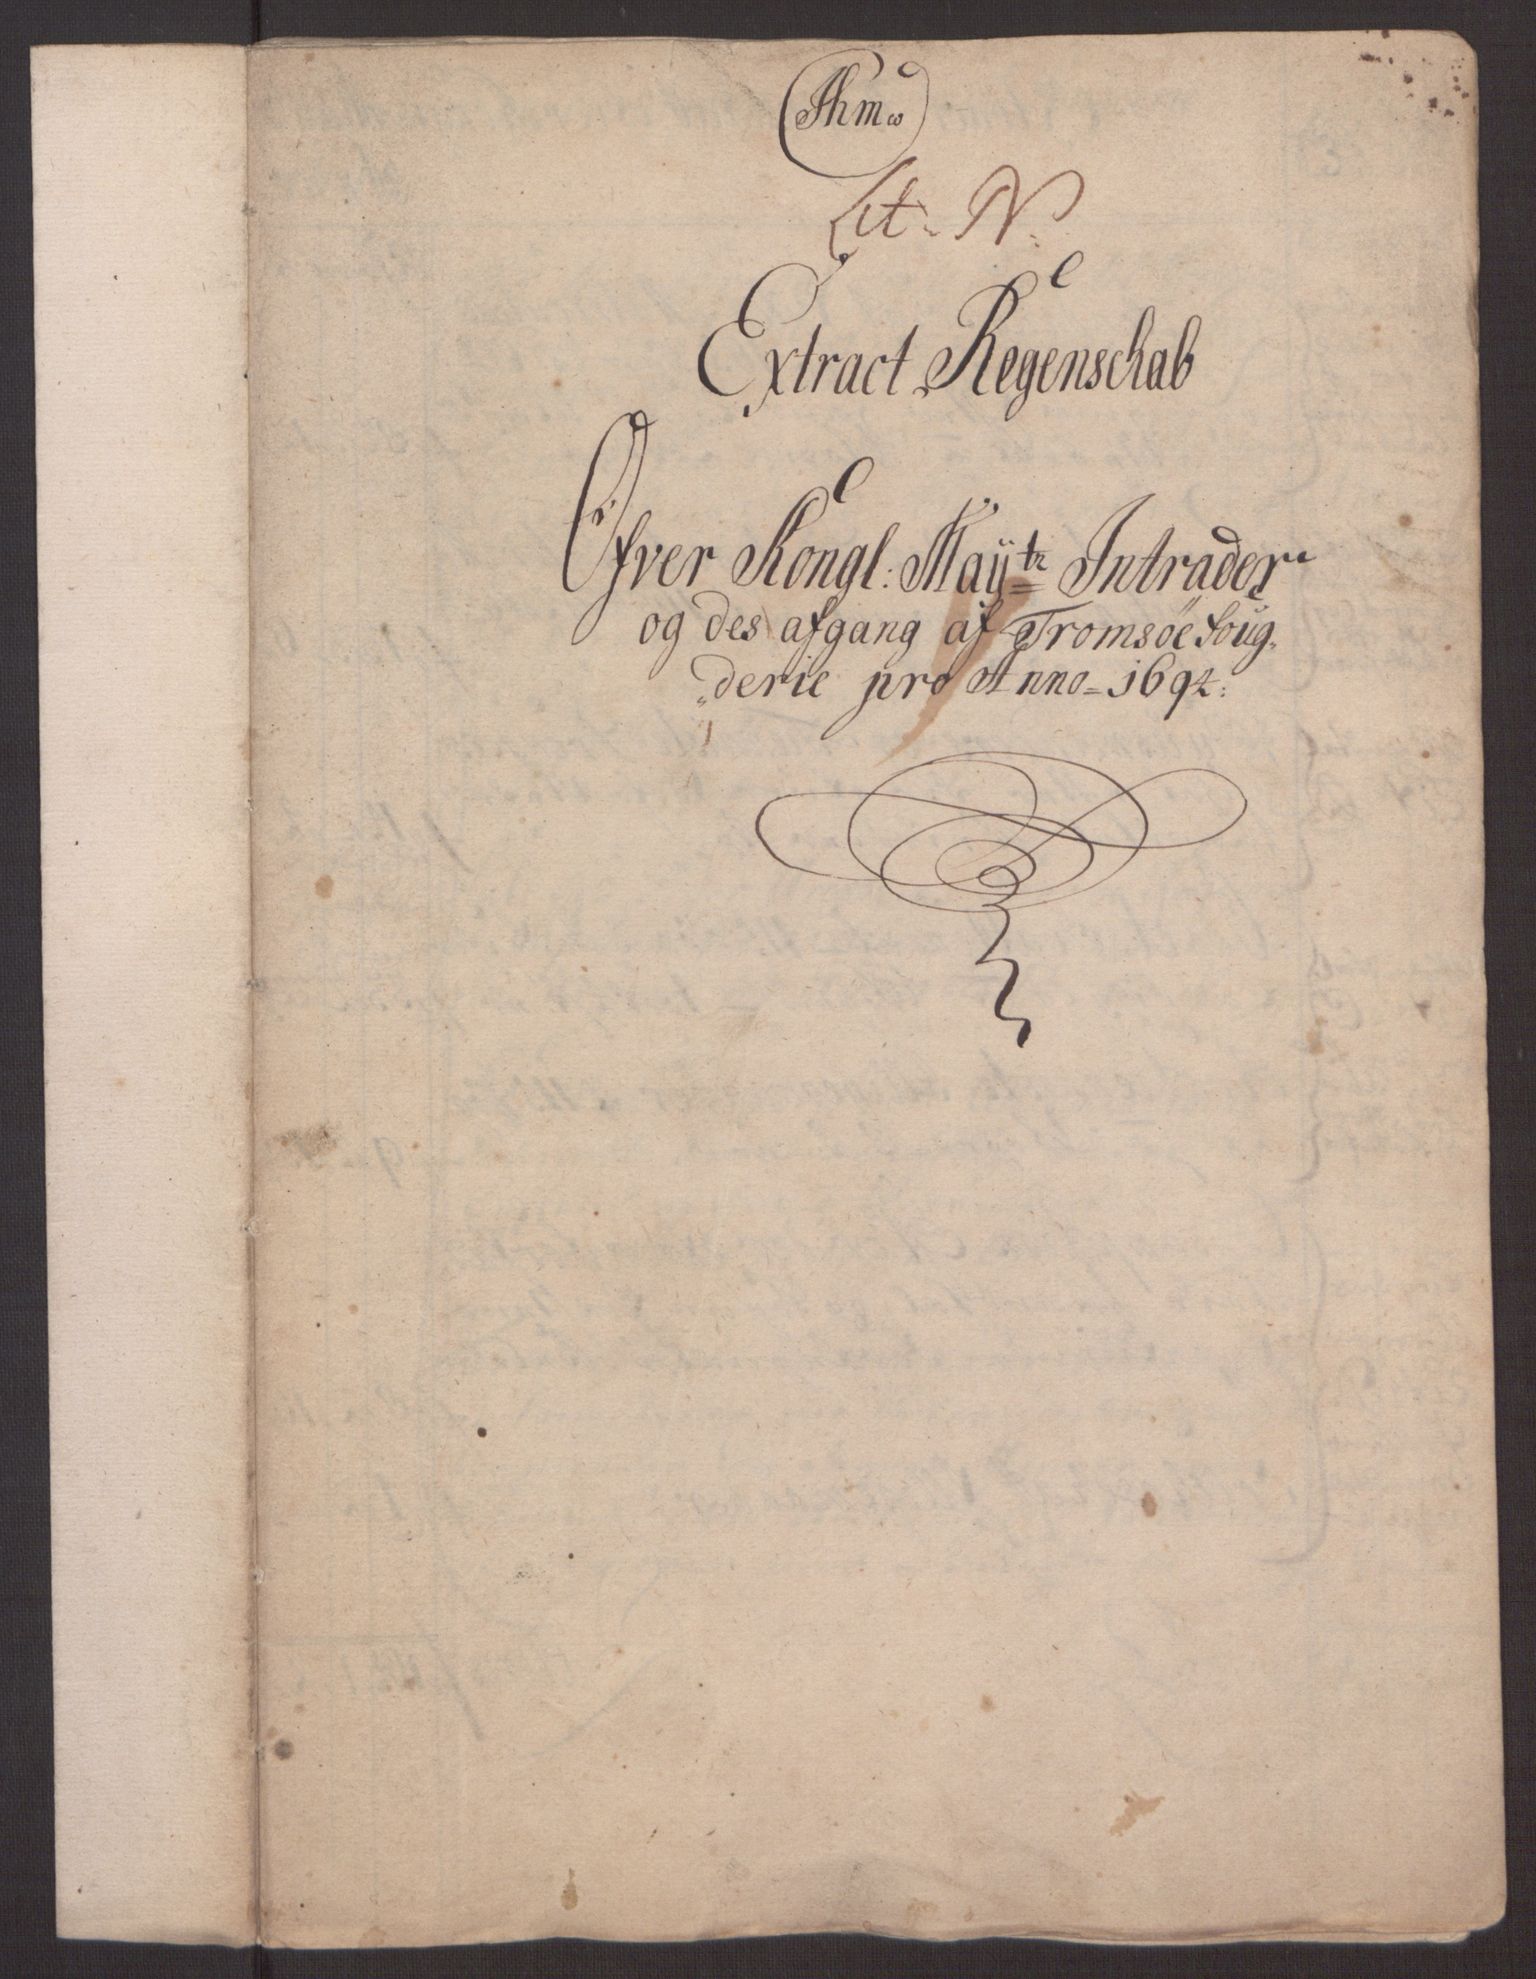 Thm
Lit. N.
Extract Regenschab
Ofver Kongl: Maÿtz Intrader
og des afgang af Tromsöe foug„
„derie pro Anno = 1692: